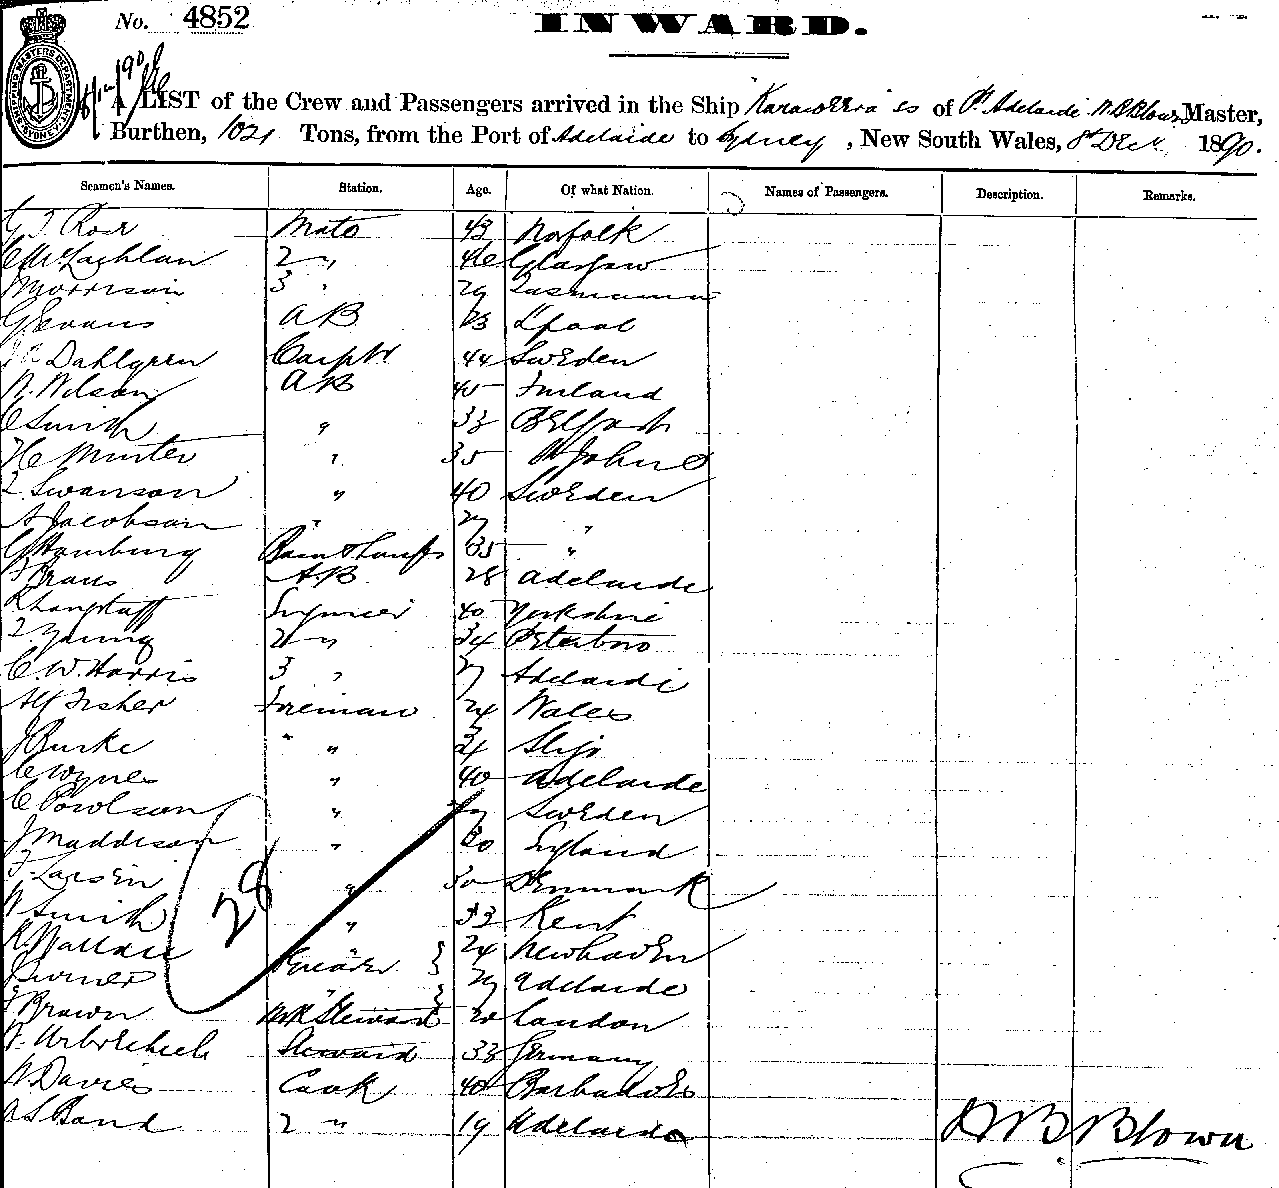 No. 4852
INWARD.
A LIST of the Crew and Passengers arrived in the Ship "Karaweera" ss of Pt Adelaide N B Blown, Master,
Burthen, 1021 Tons, from the Port of Adelaide to Sydney, New South Wales, 8th Dec 1890.
Seamen's Names. Station. Age. Of what Nation. Names of Passengers. Description. Remarks.
Mate 43 Norfolk
C McLachlan 2 " 46 Glasgow
Morrison 3 " 29 Tasmania
G Evans AB 23 L'pool
Dahlgren Carptr 44 Sweden
N. Wilson AB 45 Finland
C Smith " 33 Belfast
H C Minter " 35 St Johns
Swanson " 40 Sweden
A Jacobson " 27 "
G Hamburg 35 "
A.B 28 Adelaide
R Langstaff Engineer 40 Yorkshire
T. Young 2 " 34 Peterboro
C. W. Harris 3 " 27 Adelaide
Alf Fisher Fireman 24 Wales
J Burke " " 34 Sligo
C Wynes " 40 Adelaide
C Powlson " 27 Sweden
J Maddison " 30 England
F. Larsen " 30 Denmark
W Smith " 33 Kent
R. Wallace " 24 Newhaven
29 Adelaide
Brown Steward 20 London
Steward 33 Germany
W Davies Cook 40 Barbadoes
A S Band 2 " 19 Adelaide
28
N B Blown